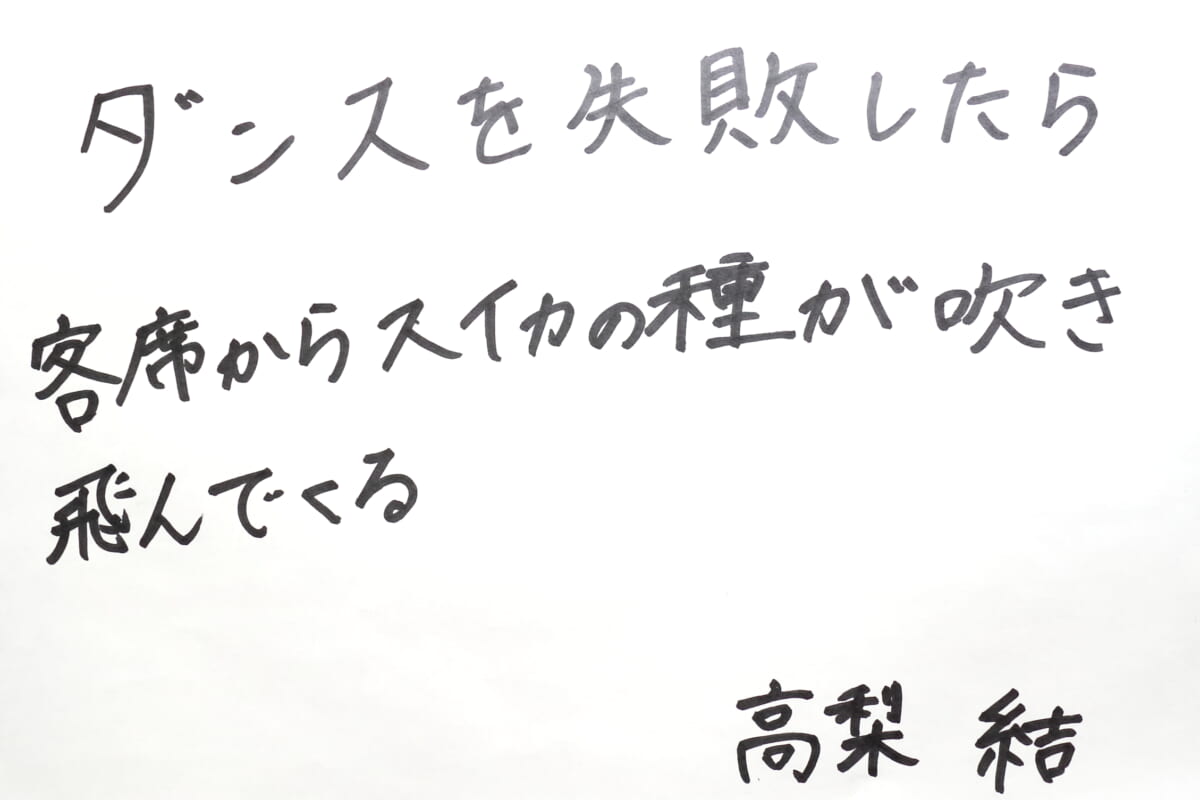 ダンスを失敗したら
客席からスイカの種が吹き
飛んでくる
高梨 結